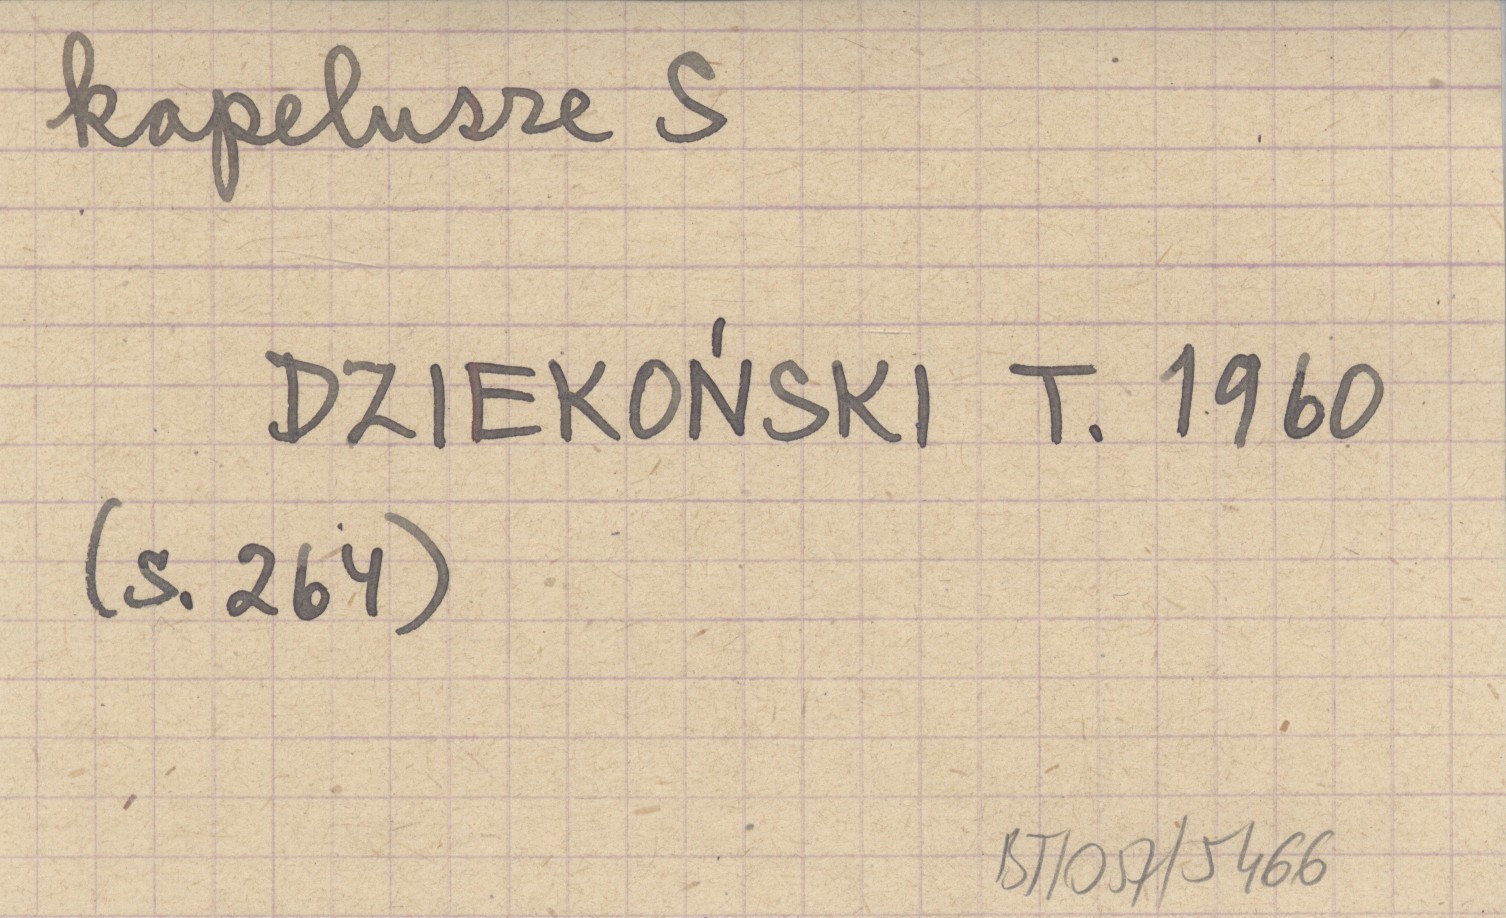 kapelusze S
DZIEKOŃSKI T. 1960
(s. 264)
BT/057/5466